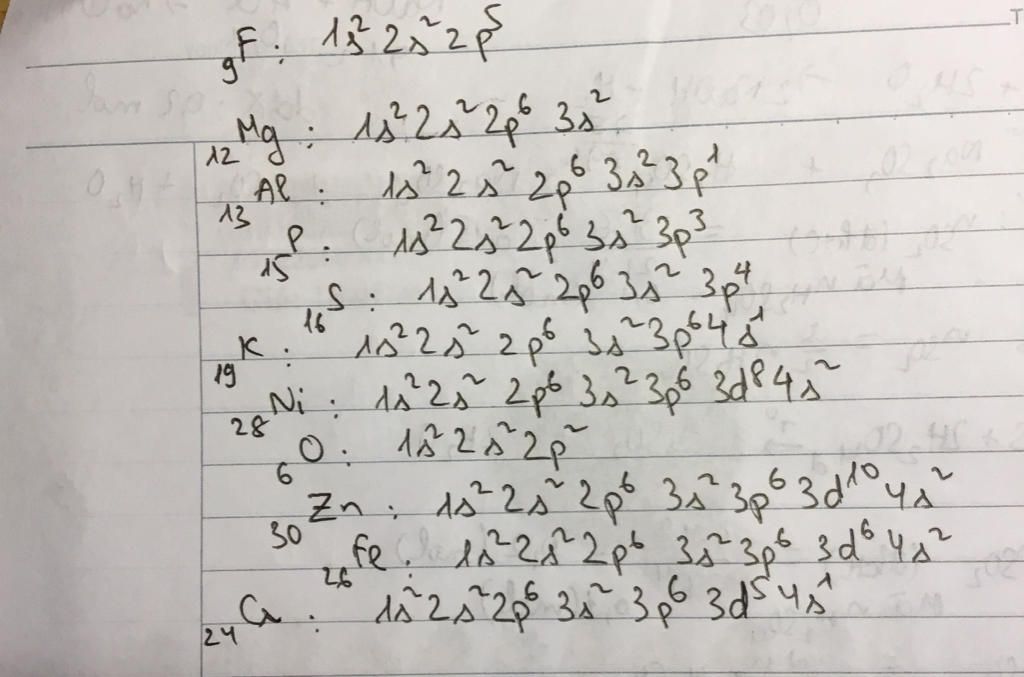 ₉F : 1s² 2s² 2p⁵
₁₂Mg : 1s² 2s² 2p⁶ 3s²
₁₃Al : 1s² 2s² 2p⁶ 3s² 3p¹
₁₅P : 1s² 2s² 2p⁶ 3s² 3p³
₁₆S : 1s² 2s² 2p⁶ 3s² 3p⁴
₁₉K : 1s² 2s² 2p⁶ 3s² 3p⁶ 4s¹
₂₈Ni : 1s² 2s² 2p⁶ 3s² 3p⁶ 3d⁸ 4s²
₆O : 1s² 2s² 2p²
₃₀Zn : 1s² 2s² 2p⁶ 3s² 3p⁶ 3d¹⁰ 4s²
₂₆Fe : 1s² 2s² 2p⁶ 3s² 3p⁶ 3d⁶ 4s²
₂₄Cr : 1s² 2s² 2p⁶ 3s² 3p⁶ 3d⁵ 4s¹